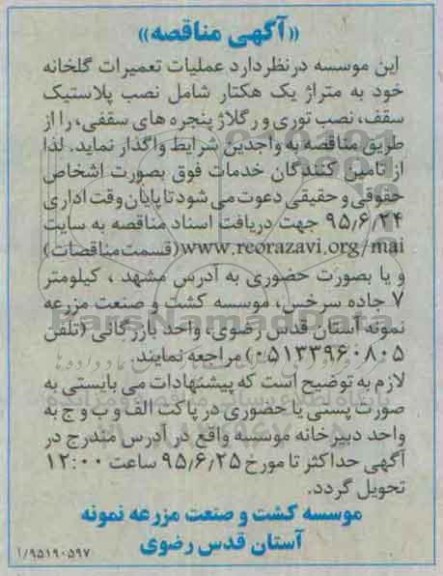 «آگهی مناقصه»
این موسسه درنظردارد عملیات تعمیرات گلخانه
خود به متراژ یک هکتار شامل نصب پلاستیک
سقف، نصب توری و رگلاژ پنجره های سقفی، را از
طریق مناقصه به واجدین شرایط واگذار نماید. لذا
از تامین کنندگان خدمات فوق بصورت اشخاص
حقوقی و حقیقی دعوت می شود تا پایان وقت اداری
۹۵/۶/۲۴ جهت دریافت اسناد مناقصه به سایت
www.reorazavi.org/mai (قسمت مناقصات)
و یا بصورت حضوری به آدرس مشهد ، کیلومتر
۷ جاده سرخس، موسسه کشت و صنعت مزرعه
نمونه آستان قدس رضوی، واحد بازرگانی (تلفن
۰۵۱۳۳۹۶۰۸۰۵) مراجعه نمایند.
لازم به توضیح است که پیشنهادات می بایستی به
صورت پستی یا حضوری در پاکت الف و ب و ج به
واحد دبیرخانه موسسه واقع در آدرس مندرج در
آگهی حداکثر تا مورخ ۹۵/۶/۲۵ ساعت ۱۲:۰۰
تحویل گردد.
موسسه کشت و صنعت مزرعه نمونه
آستان قدس رضوی
۱/۹۵۱۹۰۵۹۷
ParsNamadData